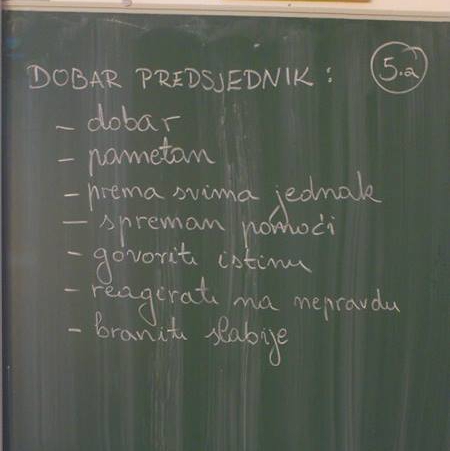 DOBAR PREDSJEDNIK: 5.a
- dobar
- pametan
- prema svima jednak
- spreman pomoći
- govoriti istinu
- reagirati na nepravdu
- braniti slabije